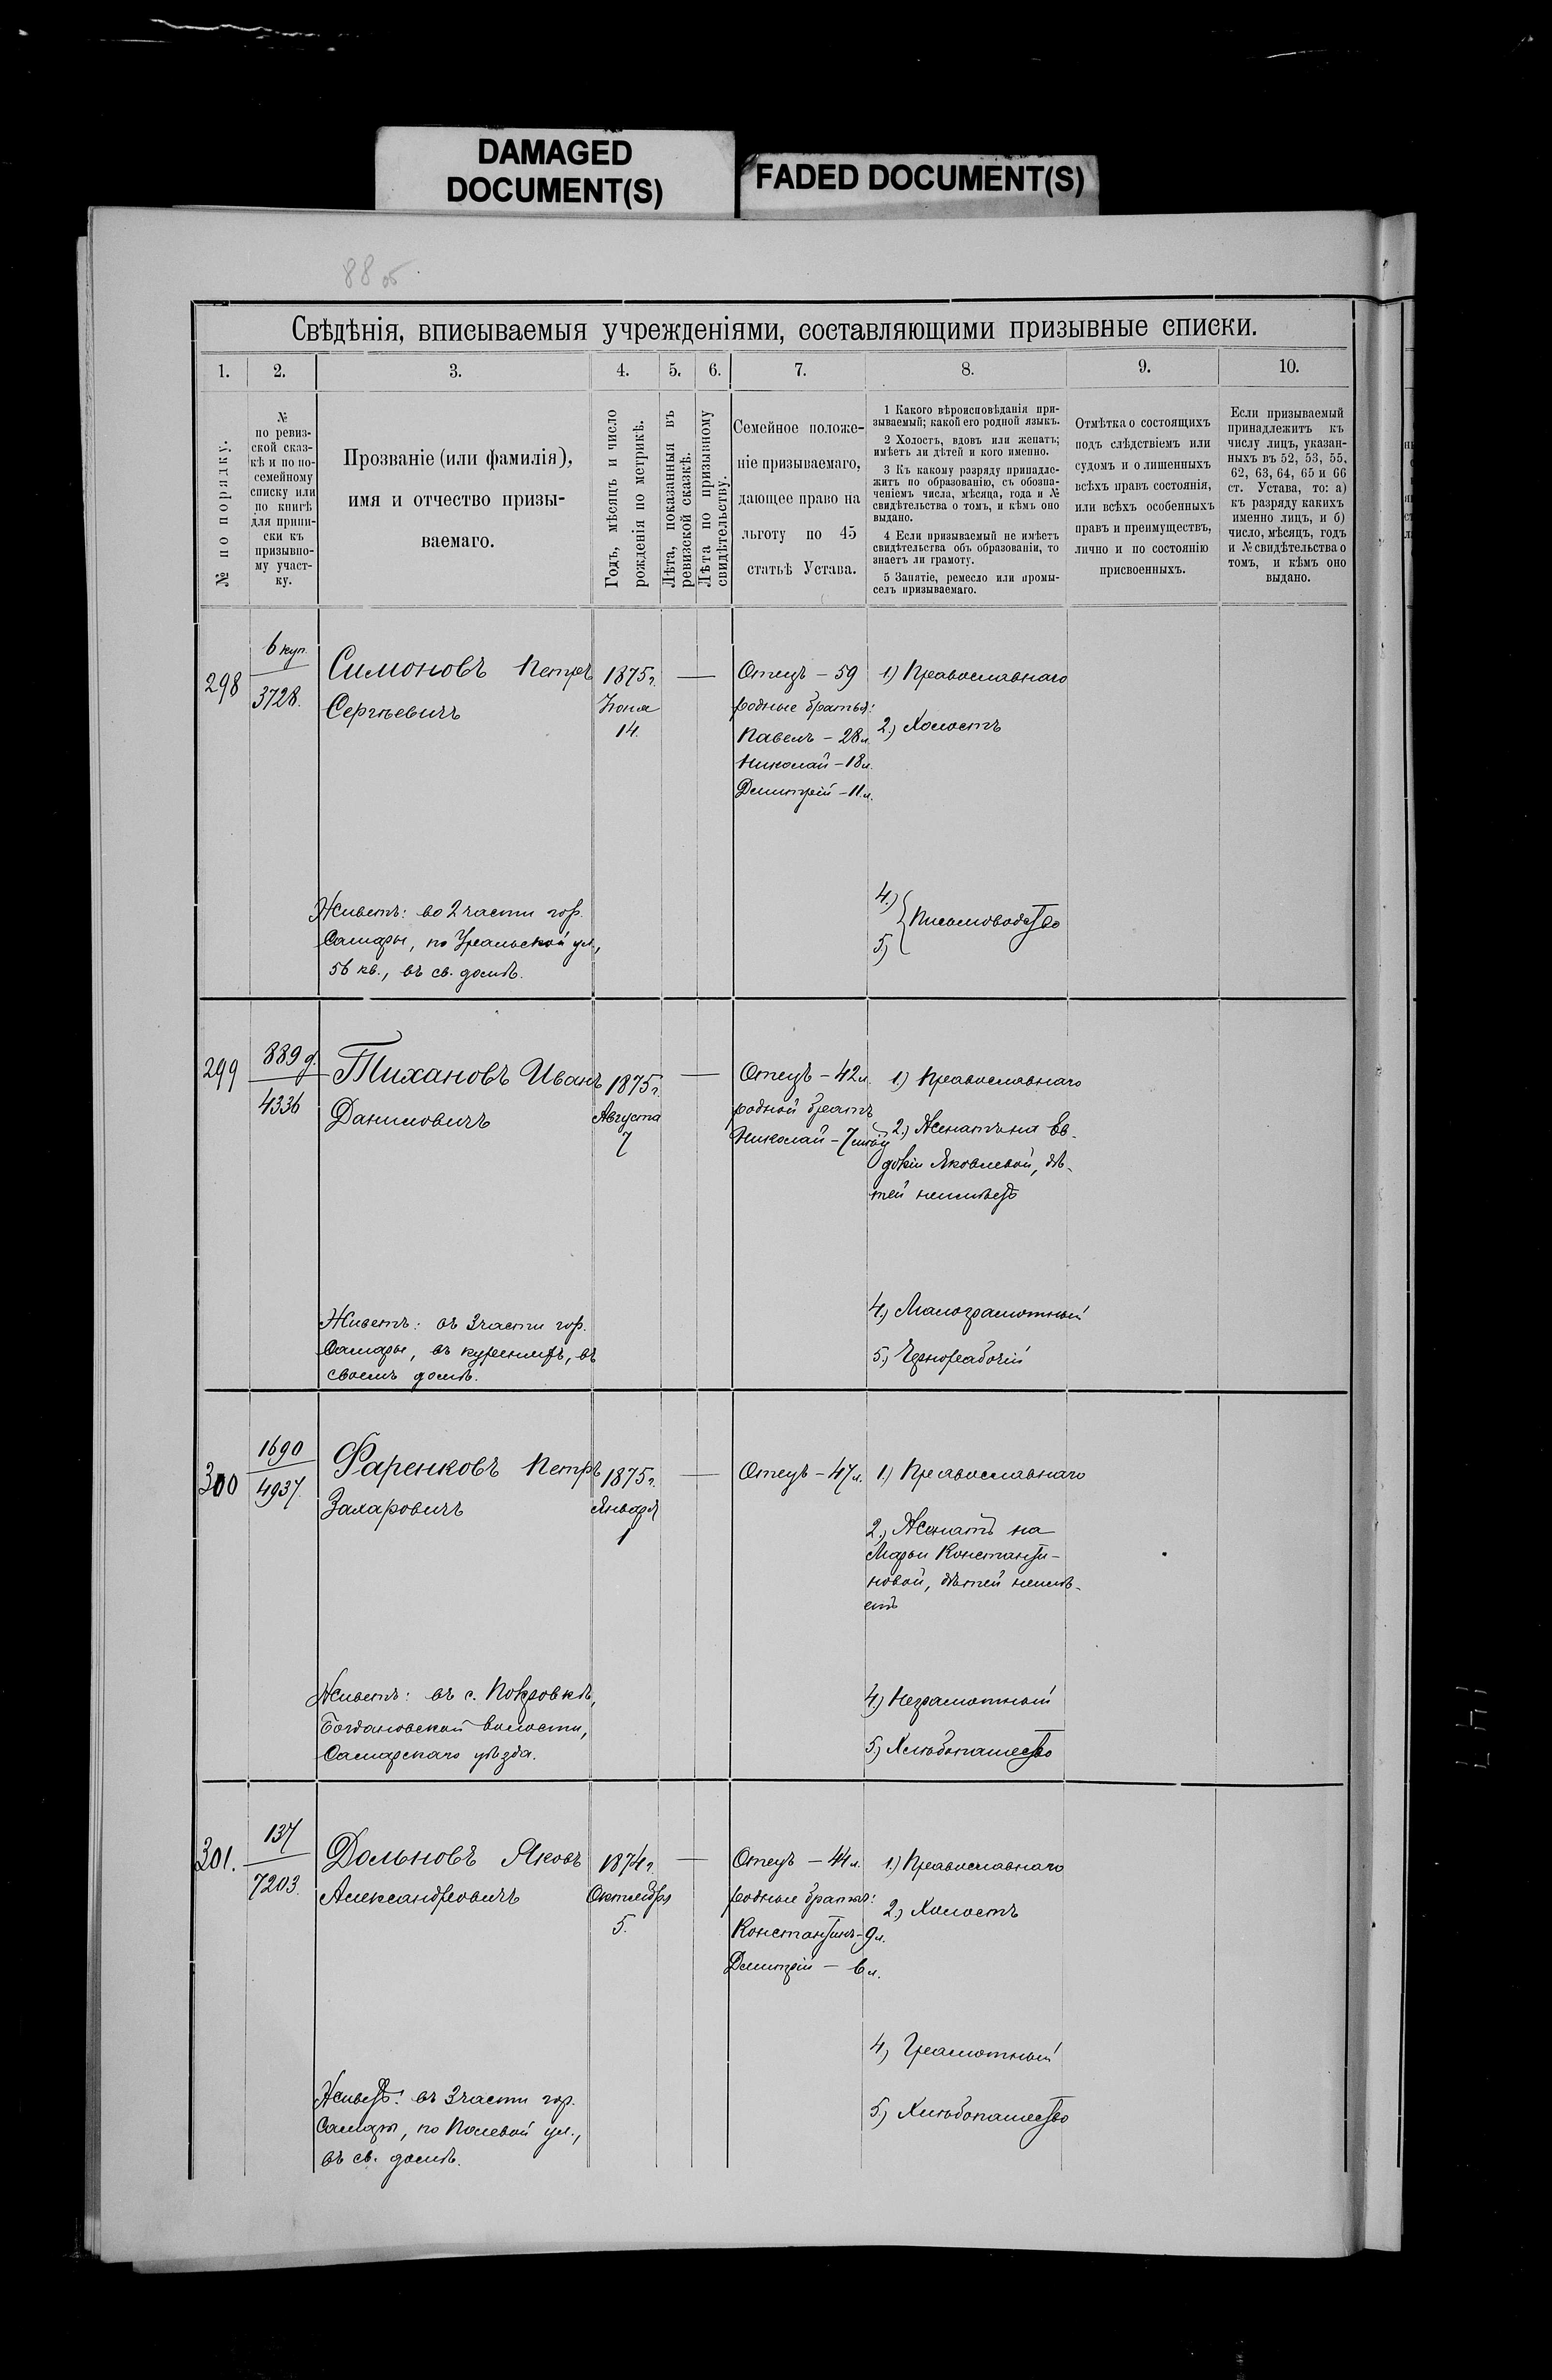 DAMAGED
DOCUMENT(S)
FADED DOCUMENT(S)
88 об
Свѣдѣнія, вписываемыя учрежденіями, составляющими призывные списки.
1. 2. 3. 4. 5. 6. 7. 8. 9. 10.
№ по порядку.
№
по ревиз-
ской сказ-
кѣ и по по-
семейному
списку или
по книгѣ
для припи-
ски къ
призывно-
му участ-
ку.
Прозваніе (или фамилія),
имя и отчество призы-
ваемаго.
Годъ, мѣсяцъ и число
рожденія по метрикѣ.
Лѣта, показанныя въ
ревизской сказкѣ.
Лѣта по призывному
свидѣтельству.
Семейное положе-
ніе призываемаго,
дающее право на
льготу по 45
статьѣ Устава.
1 Какого вѣроисповѣданія при-
зываемый; какой его родной языкъ.
2 Холостъ, вдовъ или женатъ;
имѣетъ ли дѣтей и кого именно.
3 Къ какому разряду принадле-
житъ по образованію, съ обозна-
ченіемъ числа, мѣсяца, года и №
свидѣтельства о томъ, и кѣмъ оно
выдано.
4 Если призываемый не имѣетъ
свидѣтельства объ образованіи, то
знаетъ ли грамоту.
5 Занятіе, ремесло или промы-
селъ призываемаго.
Отмѣтка о состоящихъ
подъ слѣдствіемъ или
судомъ и о лишенныхъ
всѣхъ правъ состоянія,
или всѣхъ особенныхъ
правъ и преимуществъ,
лично и по состоянію
присвоенныхъ.
Если призываемый
принадлежитъ къ
числу лицъ, указан-
ныхъ въ 52, 53, 55,
62, 63, 64, 65 и 66
ст. Устава, то: а)
къ разряду какихъ
именно лицъ, и б)
число, мѣсяцъ, годъ
и № свидѣтельства о
томъ, и кѣмъ оно
выдано.
298
6 куп.
3728.
Симоновъ Петръ
Сергѣевичъ
1875 г.
Іюня
14.
—
Отецъ – 59
родные братья:
Павелъ – 28 л.
Николай – 18 л.
Димитрій – 11 л.
1) Православнаго
2) Холостъ
4)
5)
Письмоводство
Живетъ: во 2 части гор.
Самары, по Уральской ул.,
56 кв., въ св. домѣ.
299
889 д.
4336
Тихановъ Иванъ
Даниловичъ
1875 г.
Августа
7
—
Отецъ – 42 л.
родной братъ
Николай – 7
1) Православнаго
2) Женатъ на Ев-
докіи Яковлевой, дѣ-
тей неимѣетъ
4) Малограмотный
5) Чернорабочій
Живетъ: въ 3 части гор.
Самары, въ
своемъ домѣ.
300
1690
4937.
Фаренковъ Петръ
Захаровичъ
1875 г.
Января
1
—
Отецъ – 47 л.
1) Православнаго
2) Женатъ на
Марьи Константи-
новой, дѣтей неимѣ-
етъ
4) Неграмотный
5) Хлѣбопашество
Живетъ: въ с. Покровкѣ,
Богдановской волости,
Самарскаго уѣзда.
301.
137
7203.
Дольновъ Яковъ
Александровичъ
1874 г.
Октября
5.
—
Отецъ – 44 л.
родные братья:
Константинъ – 9 л.
Димитрій – 6 л.
1) Православнаго
2) Холостъ
4) Грамотный
5) Хлѣбопашество
Живетъ: въ 3 части гор.
Самары, по Полевой ул.,
въ св. домѣ.